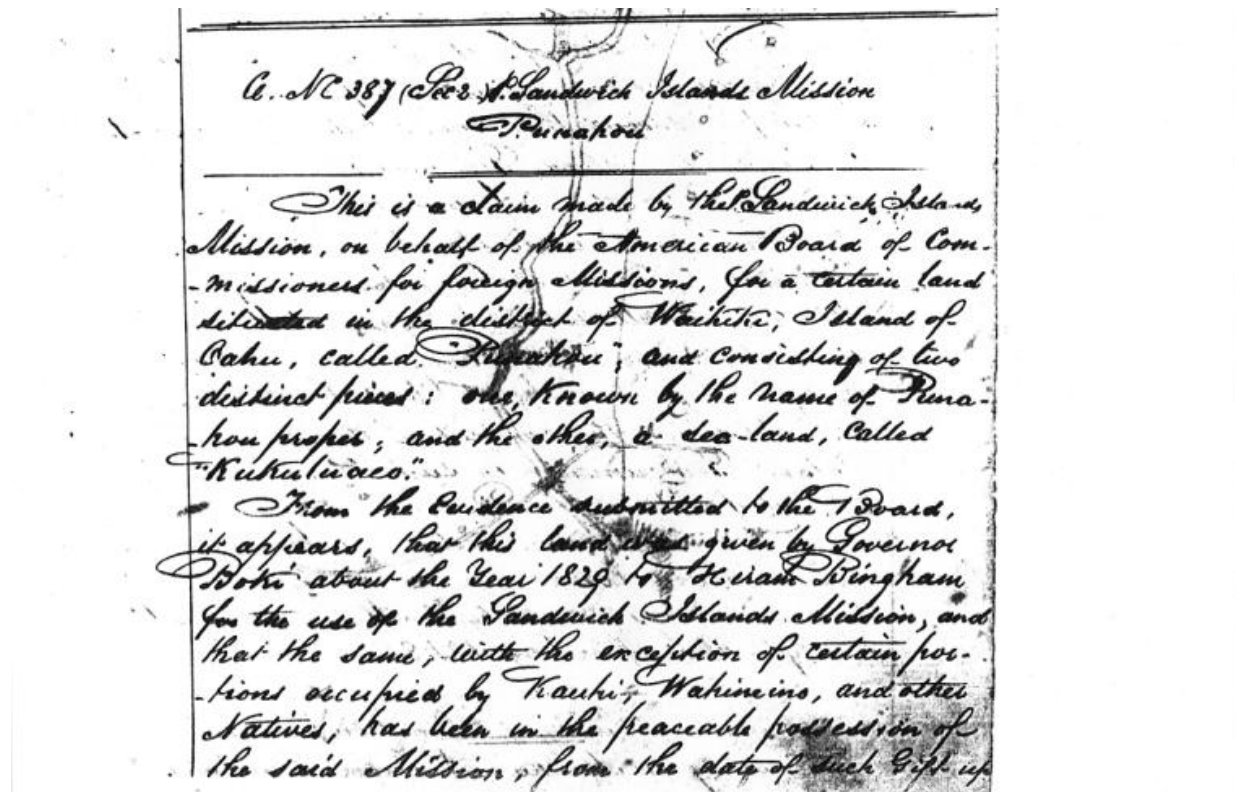 C. No 387 (Sec 2) P. Sandwich Islands Mission
Punahou
This is a claim made by the P. Sandwich Islands
Mission, on behalf of the American Board of Com-
-missioners for foreign Missions, for a certain land
situated in the district of Waikiki, Island of
Oahu, called "Punahou", and consisting of two
distinct pieces: one, Known by the name of Puna-
-hou proper, and the other, a sea-land, called
"Kukuluaeo."
From the Evidence submitted to the Board,
it appears, that this land was given by Governor
Boki about the Year 1829 to Hiram Bingham
for the use of the Sandwich Islands Mission, and
that the same, with the exception of certain por-
-tions occupied by Kauhi, Wahineino, and other
Natives, has been in the peaceable possession of
the said Mission, from the date of such Gift up